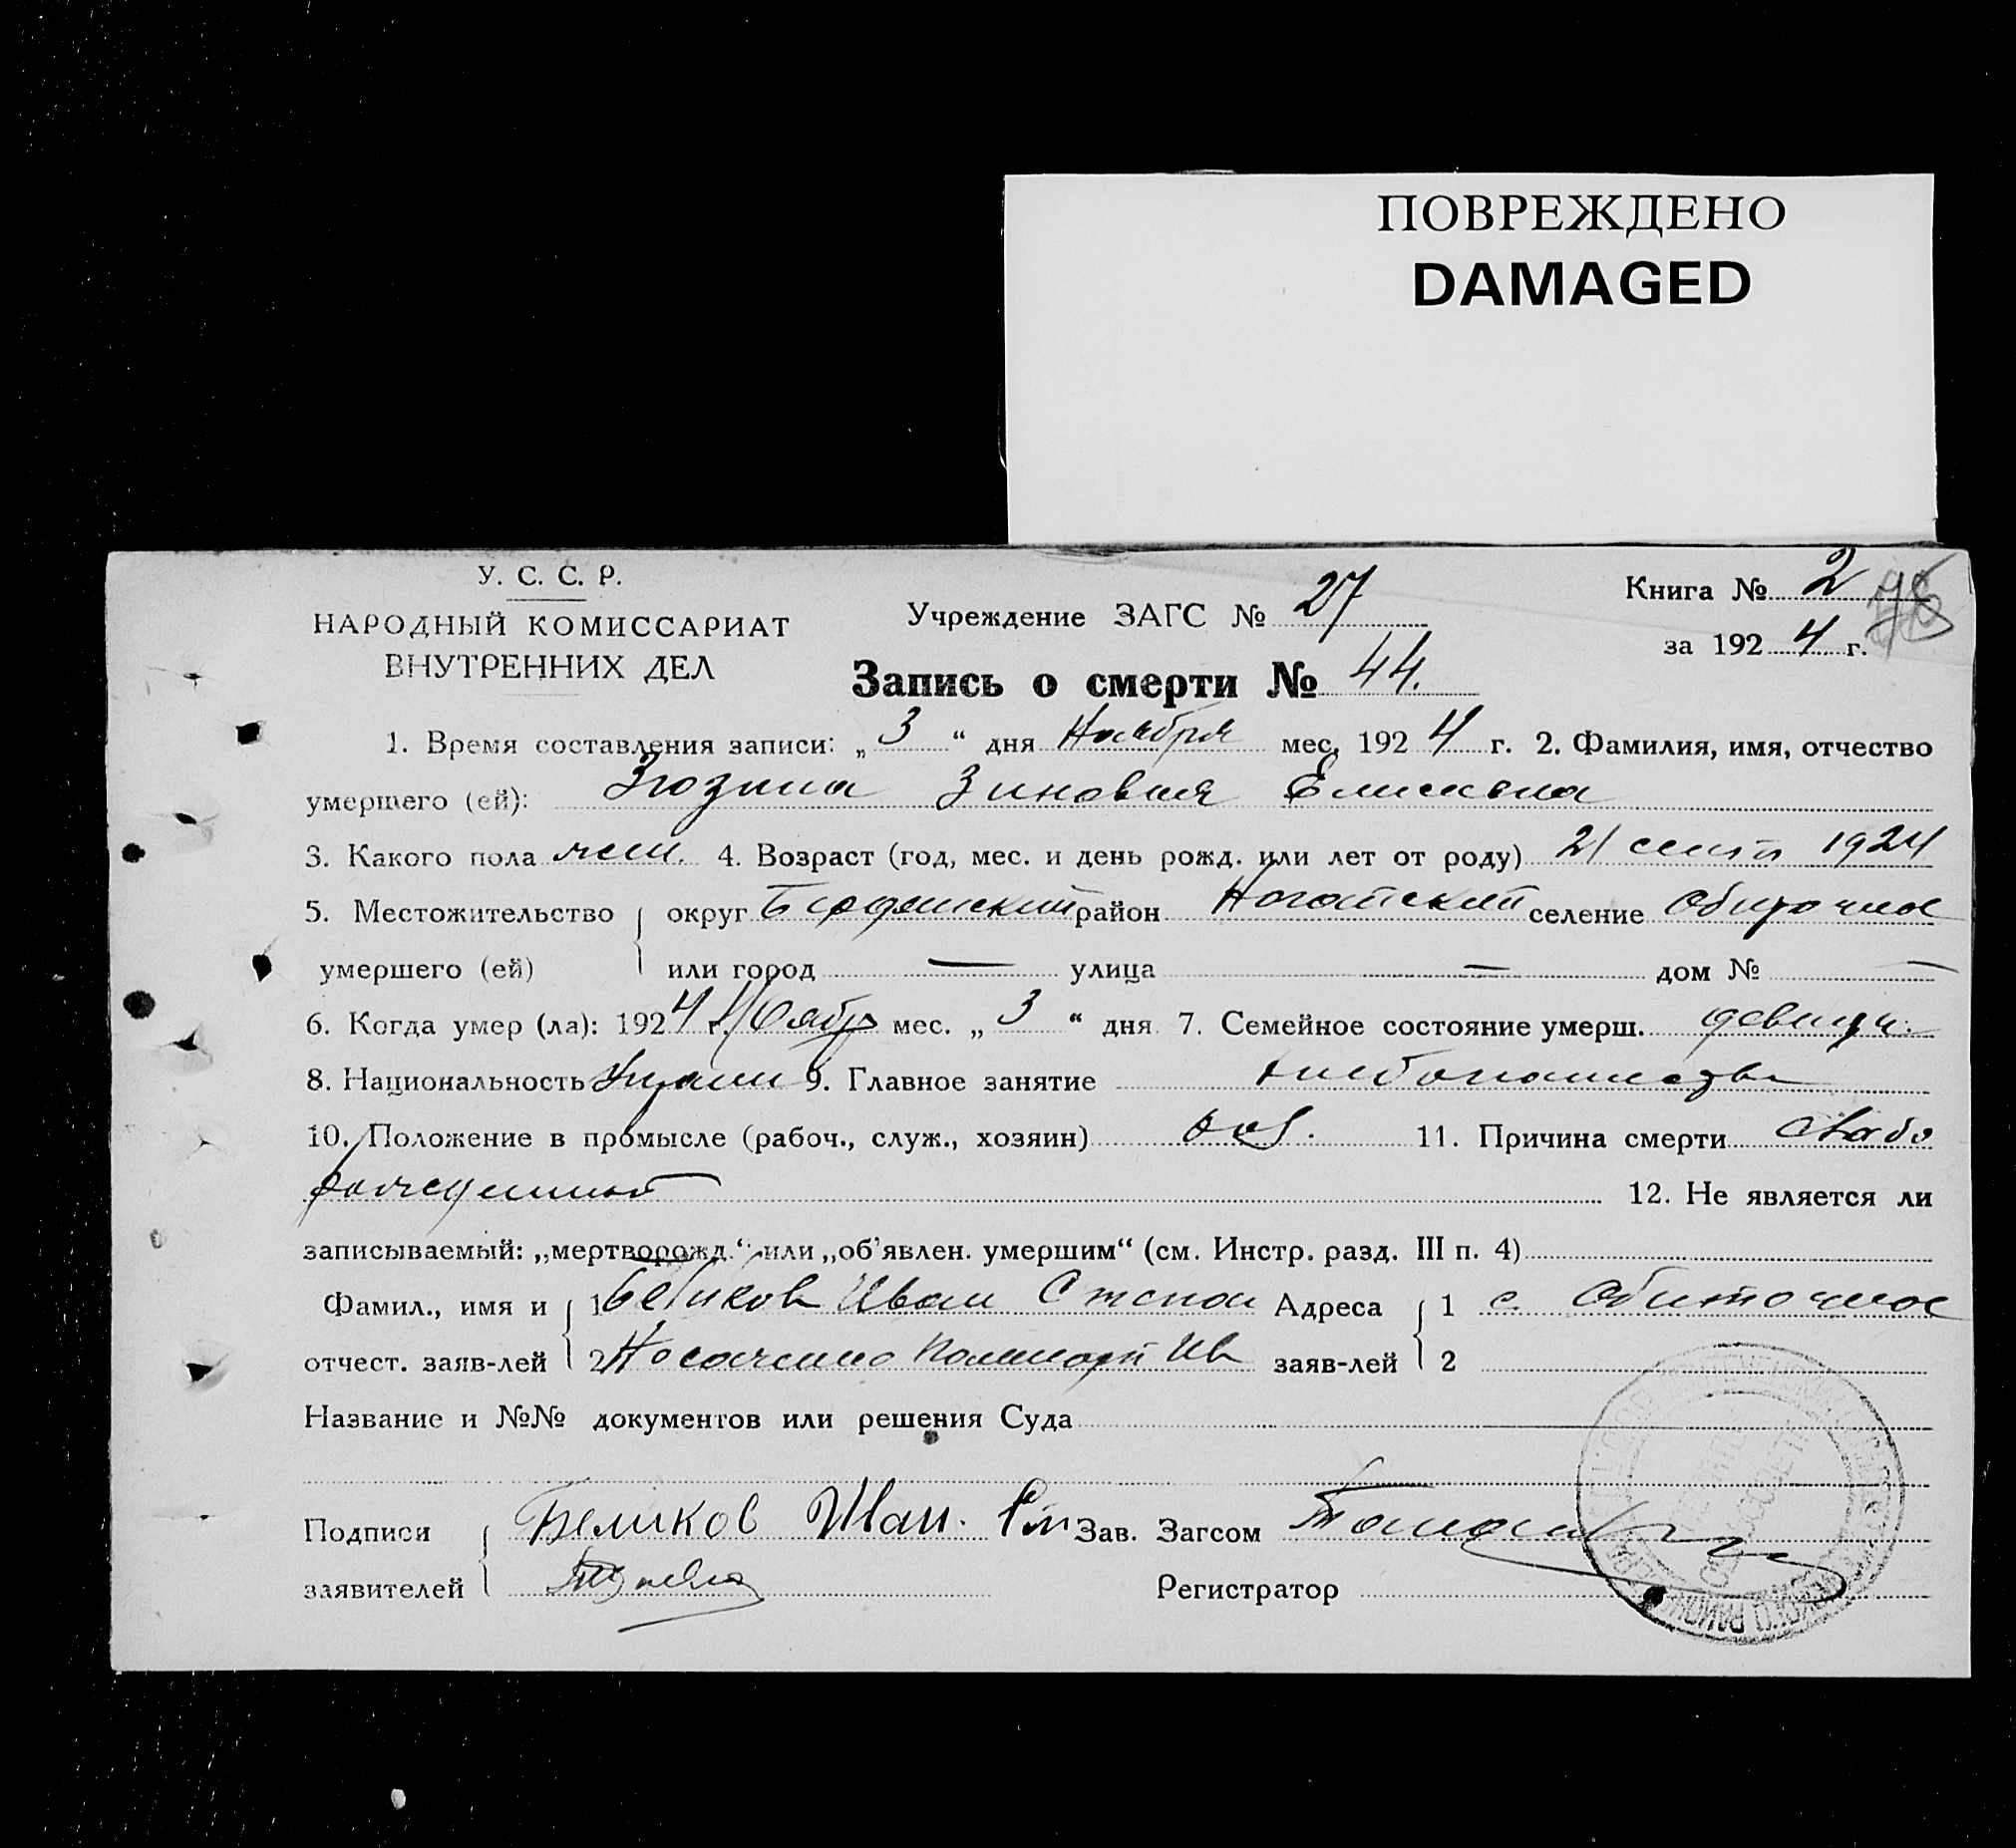 ПОВРЕЖДЕНО
DAMAGED
У. С. С. Р.
НАРОДНЫЙ КОМИССАРИАТ
ВНУТРЕННИХ ДЕЛ
Учреждение ЗАГС № 27
Книга № 2
за 1924 г.
Запись о смерти № 44.
1. Время составления записи: „3“ дня Ноября мес. 1924 г. 2. Фамилия, имя, отчество
умершего (ей): Зюзина Зиновия
3. Какого пола жен. 4. Возраст (год, мес. и день рожд. или лет от роду) 21 сент 1924
5. Местожительство округ Бердянский район Ногайский селение Обиточное
умершего (ей) или город — улица — дом № —
6. Когда умер (ла): 1924 г. Ноябр мес. „3“ дня 7. Семейное состояние умерш. девица
8. Национальность 9. Главное занятие хлебопашество
10. Положение в промысле (рабоч., служ., хозяин) хоз. 11. Причина смерти слабо
рожденная 12. Не является ли
записываемый: „мертворожд.“ или „об'явлен. умершим“ (см. Инстр. разд. III п. 4)
Фамил., имя и 1 Беликов Иван Адреса 1 с. Обиточное
отчест. заяв-лей 2 Носаченко Ив заяв-лей 2
Название и №№ документов или решения Суда
Подписи Беликов Иван. Зав. Загсом
заявителей Регистратор